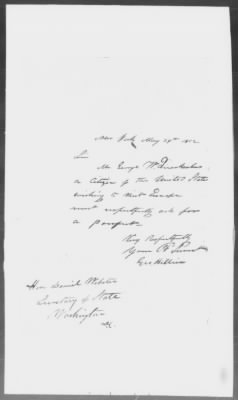 New York May 29th 1852
Sir
Mr George W.
a Citizen of the United States
wishing to visit Europe
most respectfully ask for
a passport
Very Respectfully
Your Obt Servt
Geo
Hon Daniel Webster
Secretary of State
Washington